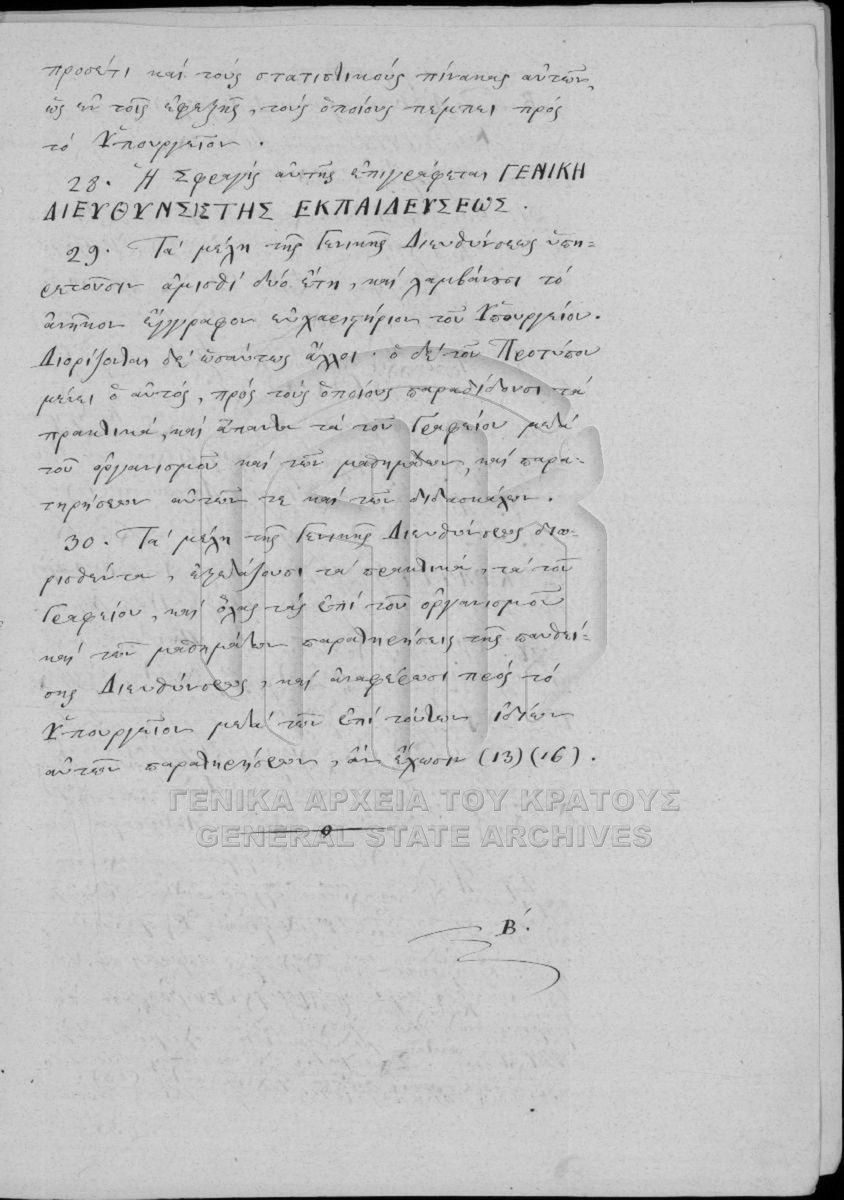 προσέτι καὶ τοὺς στατιστικοὺς πίνακας αὐτῶν,
ὡς ἐν τοῖς ἐφεξῆς, τοὺς ὁποίους πέμπει πρὸς
τὸ Ὑπουργεῖον.
28. Ἡ Σφραγὶς αὐτῆς ἐπιγράφεται ΓΕΝΙΚΗ
ΔΙΕΥΘΥΝΣΙΣ ΤΗΣ ΕΚΠΑΙΔΕΥΣΕΩΣ.
29. Τὰ μέλη τῆς Γενικῆς Διευθύνσεως ὑπη-
ρετοῦσιν ἀμισθὶ δύο ἔτη, καὶ λαμβάνουσι τὸ
ἀνῆκον ἔγγραφον εὐχαριστήριον τοῦ Ὑπουργείου.
Διορίζονται δὲ ὡσαύτως ἄλλοι· ὁ δὲ τοῦ Προτύπου
μένει ὁ αὐτός, πρὸς τοὺς ὁποίους παραδίδουσι τὰ
πρακτικά, καὶ ἅπαντα τὰ τοῦ Γραφείου μετὰ
τοῦ ὀργανισμοῦ καὶ τῶν μαθημάτων, καὶ παρα-
τηρήσεων αὐτῶν τε καὶ τῶν διδασκάλων.
30. Τὰ μέλη τῆς Γενικῆς Διευθύνσεως διο-
ρισθέντα, ἐξετάζουσι τὰ πρακτικά, τὰ τοῦ
Γραφείου, καὶ ὅλας τὰς ἐπὶ τοῦ ὀργανισμοῦ
καὶ τῶν μαθημάτων παρατηρήσεις τῆς παυθεί-
σης Διευθύνσεως, καὶ ἀναφέρουσι πρὸς τὸ
Ὑπουργεῖον μετὰ τῶν ἐπὶ τούτων ἰδίων
αὐτῶν παρατηρήσεων, ἂν ἔχωσιν (13) (16).
ΓΕΝΙΚΑ ΑΡΧΕΙΑ ΤΟΥ ΚΡΑΤΟΥΣ
GENERAL STATE ARCHIVES
Β΄.